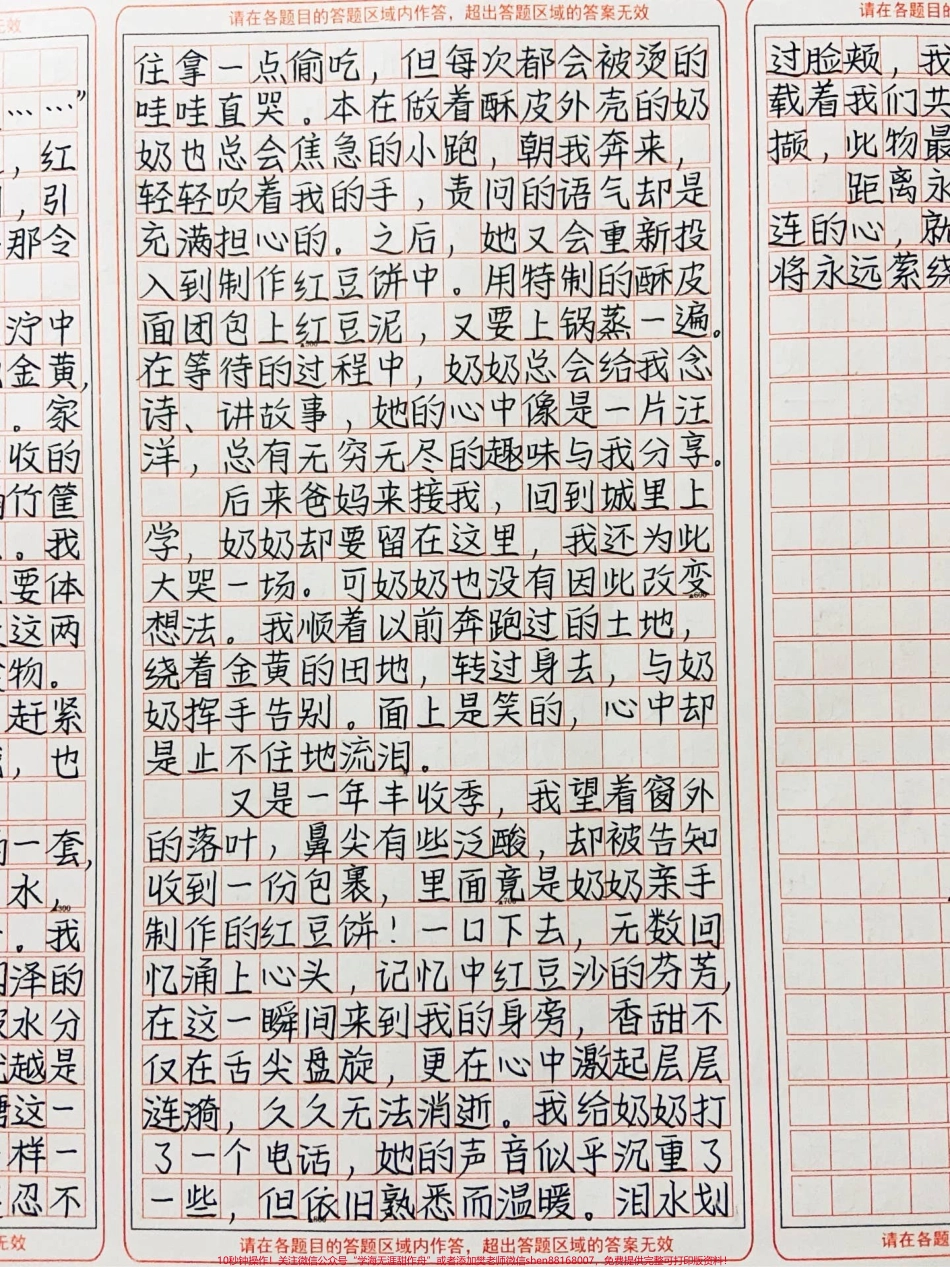 无效
……”
，红
，引
那令
泞中
金黄，
。家
收的
竹筐
。我
要体
这两
物。
赶紧
，也
一套，
水，
▲300
。我
泽的
水分
越是
这一
样一
忍不
无效
请在各题目的答题区域内作答，超出答题区域的答案无效
住拿一点偷吃，但每次都会被烫的
哇哇直哭。本在做着酥皮外壳的奶
奶也总会焦急的小跑，朝我奔来，
轻轻吹着我的手，责问的语气却是
充满担心的。之后，她又会重新投
入到制作红豆饼中。用特制的酥皮
面团包上红豆泥，又要上锅蒸一遍。
在等待的过程中，奶奶总会给我念
诗、讲故事，她的心中像是一片汪
洋，总有无穷无尽的趣味与我分享。
后来爸妈来接我，回到城里上
学，奶奶却要留在这里，我还为此
大哭一场。可奶奶也没有因此改变
▲600
想法。我顺着以前奔跑过的土地，
绕着金黄的田地，转过身去，与奶
奶挥手告别。面上是笑的，心中却
是止不住地流泪。
又是一年丰收季，我望着窗外
的落叶，鼻尖有些泛酸，却被告知
收到一份包裹，里面竟是奶奶亲手
▲700
制作的红豆饼！一口下去，无数回
忆涌上心头，记忆中红豆沙的芬芳，
在这一瞬间来到我的身旁，香甜不
仅在舌尖盘旋，更在心中激起层层
涟漪，久久无法消逝。我给奶奶打
了一个电话，她的声音似乎沉重了
一些，但依旧熟悉而温暖。泪水划
请在各题目的答题区域内作答，超出答题区域的答案无效
请在各题目的
过脸颊，我
载着我们共
撷，此物最
距离永
连的心，就
将永远萦绕
请在各题目
10秒钟操作！关注微信公众号“学海无涯甜作舟”或者添加笑老师微信shen88168007，免费提供完整可打印版资料！